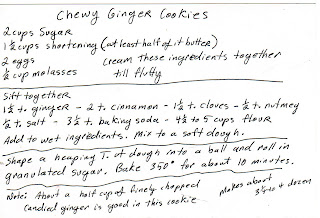 Chewy Ginger Cookies
2 cups sugar
1½ cups shortening (at least half of it butter)
2 eggs cream these ingredients together
½ cup molasses till fluffy
Sift together
1½ t. ginger - 2 t. cinnamon - 1½ t. cloves - ½ t. nutmeg
½ t. salt - 3½ t. baking soda - 4½ to 5 cups flour
Add to wet ingredients. Mix to a soft dough.
Shape a heaping T. of dough into a ball and roll in
granulated sugar. Bake 350° for about 10 minutes.
Note: About a half cup of finely chopped Makes about
candied ginger is good in this cookie 3½ to 4 dozen